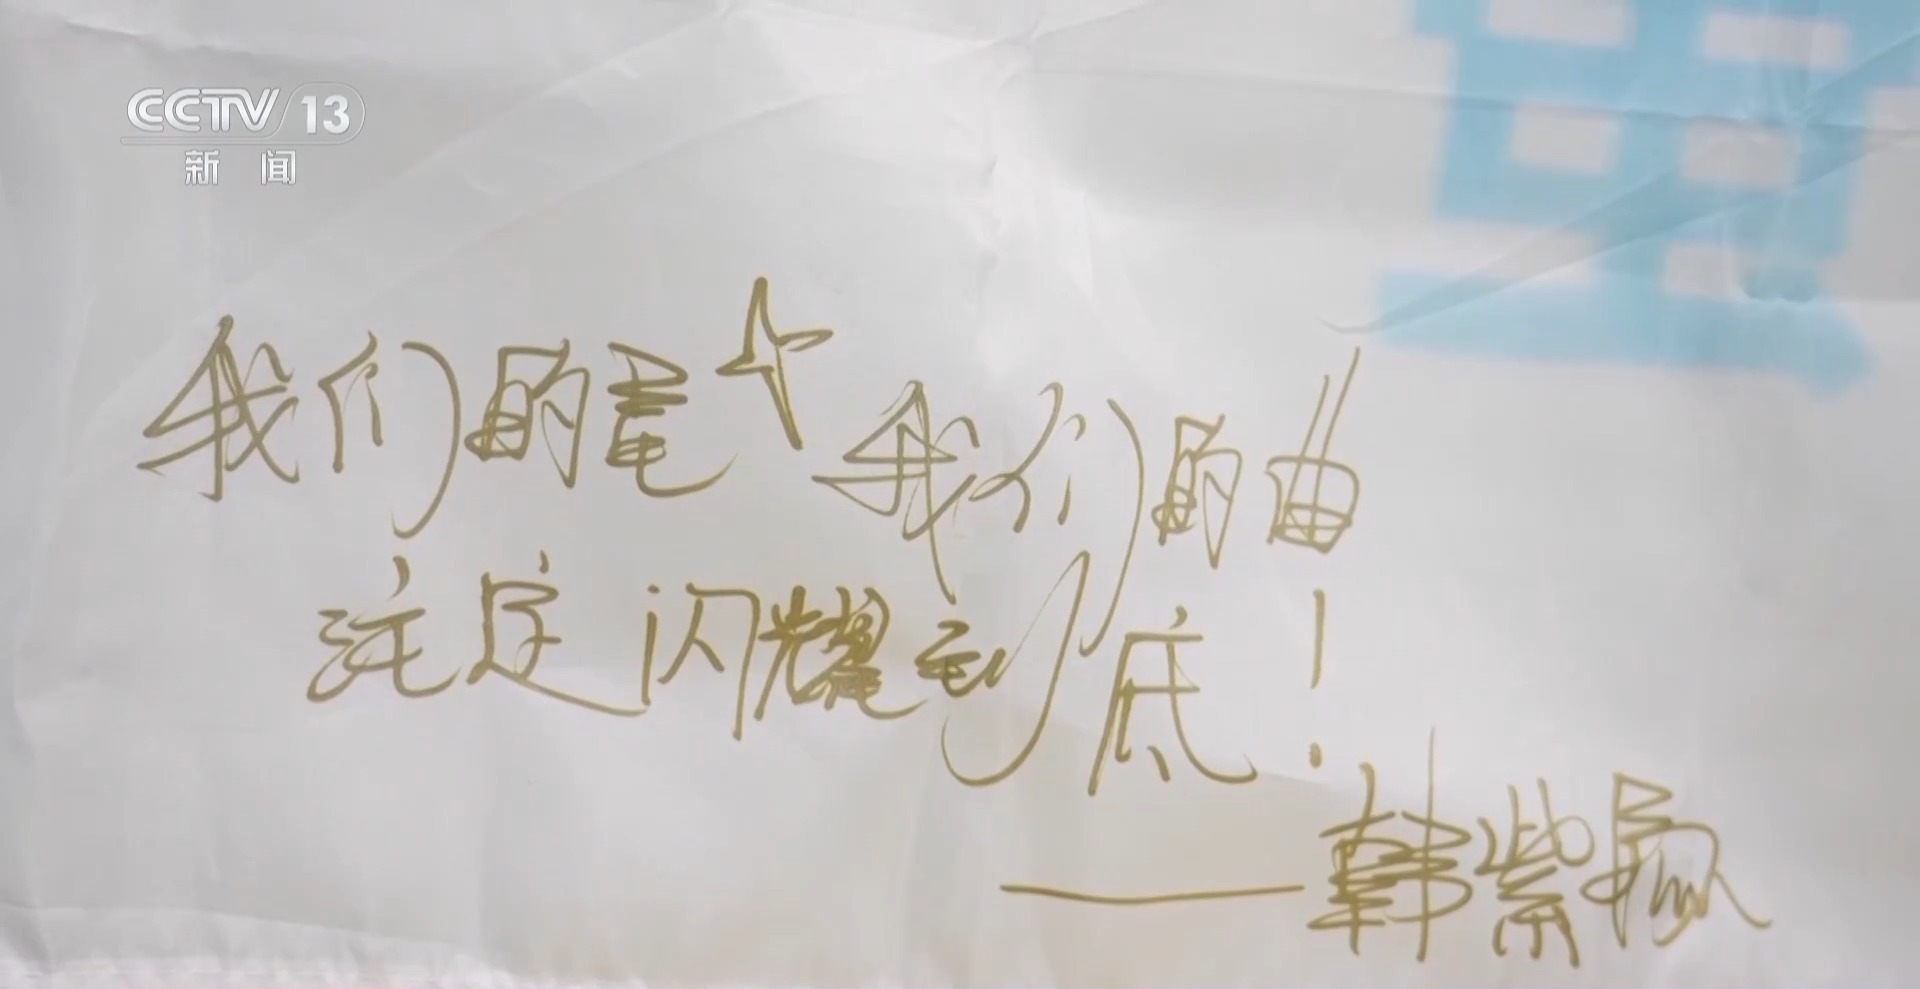 CCTV 13
新闻
我们的星 我们的曲
注定闪耀到底!
——韩紫